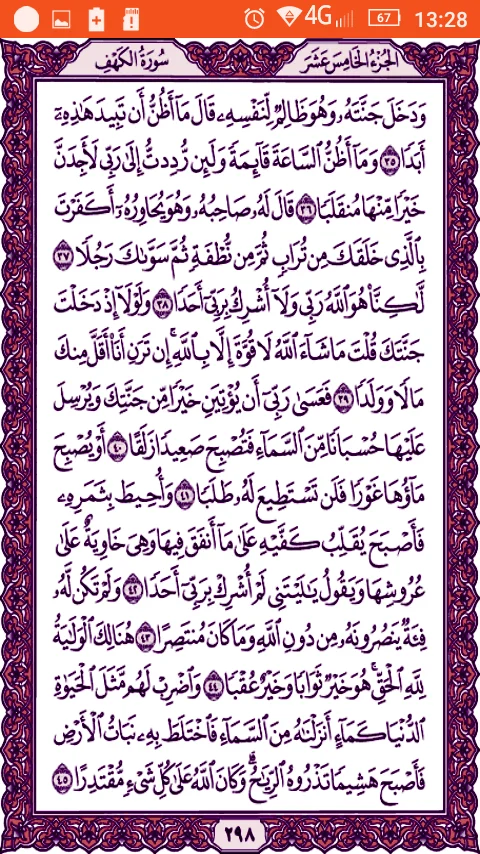 4G 67 13:28
سُورَةُ الكَهْفِ الجُزْءُ الخَامِسَ عَشَرَ
وَدَخَلَ جَنَّتَهُۥ وَهُوَ ظَالِمٌ لِّنَفْسِهِۦ قَالَ مَآ أَظُنُّ أَن تَبِيدَ هَٰذِهِۦٓ
أَبَدًا ٣٥ وَمَآ أَظُنُّ ٱلسَّاعَةَ قَآئِمَةً وَلَئِن رُّدِدتُّ إِلَىٰ رَبِّى لَأَجِدَنَّ
خَيْرًا مِّنْهَا مُنقَلَبًا ٣٦ قَالَ لَهُۥ صَاحِبُهُۥ وَهُوَ يُحَاوِرُهُۥٓ أَكَفَرْتَ
بِٱلَّذِى خَلَقَكَ مِن تُرَابٍ ثُمَّ مِن نُّطْفَةٍ ثُمَّ سَوَّىٰكَ رَجُلًا ٣٧
لَّٰكِنَّا۠ هُوَ ٱللَّهُ رَبِّى وَلَآ أُشْرِكُ بِرَبِّىٓ أَحَدًا ٣٨ وَلَوْلَآ إِذْ دَخَلْتَ
جَنَّتَكَ قُلْتَ مَا شَآءَ ٱللَّهُ لَا قُوَّةَ إِلَّا بِٱللَّهِ ۚ إِن تَرَنِ أَنَا۠ أَقَلَّ مِنكَ
مَالًا وَوَلَدًا ٣٩ فَعَسَىٰ رَبِّىٓ أَن يُؤْتِيَنِ خَيْرًا مِّن جَنَّتِكَ وَيُرْسِلَ
عَلَيْهَا حُسْبَانًا مِّنَ ٱلسَّمَآءِ فَتُصْبِحَ صَعِيدًا زَلَقًا ٤٠ أَوْ يُصْبِحَ
مَآؤُهَا غَوْرًا فَلَن تَسْتَطِيعَ لَهُۥ طَلَبًا ٤١ وَأُحِيطَ بِثَمَرِهِۦ
فَأَصْبَحَ يُقَلِّبُ كَفَّيْهِ عَلَىٰ مَآ أَنفَقَ فِيهَا وَهِىَ خَاوِيَةٌ عَلَىٰ
عُرُوشِهَا وَيَقُولُ يَٰلَيْتَنِى لَمْ أُشْرِكْ بِرَبِّىٓ أَحَدًا ٤٢ وَلَمْ تَكُن لَّهُۥ
فِئَةٌ يَنصُرُونَهُۥ مِن دُونِ ٱللَّهِ وَمَا كَانَ مُنتَصِرًا ٤٣ هُنَالِكَ ٱلْوَلَٰيَةُ
لِلَّهِ ٱلْحَقِّ ۚ هُوَ خَيْرٌ ثَوَابًا وَخَيْرٌ عُقْبًا ٤٤ وَٱضْرِبْ لَهُم مَّثَلَ ٱلْحَيَوٰةِ
ٱلدُّنْيَا كَمَآءٍ أَنزَلْنَٰهُ مِنَ ٱلسَّمَآءِ فَٱخْتَلَطَ بِهِۦ نَبَاتُ ٱلْأَرْضِ
فَأَصْبَحَ هَشِيمًا تَذْرُوهُ ٱلرِّيَٰحُ ۗ وَكَانَ ٱللَّهُ عَلَىٰ كُلِّ شَىْءٍ مُّقْتَدِرًا ٤٥
٢٩٨